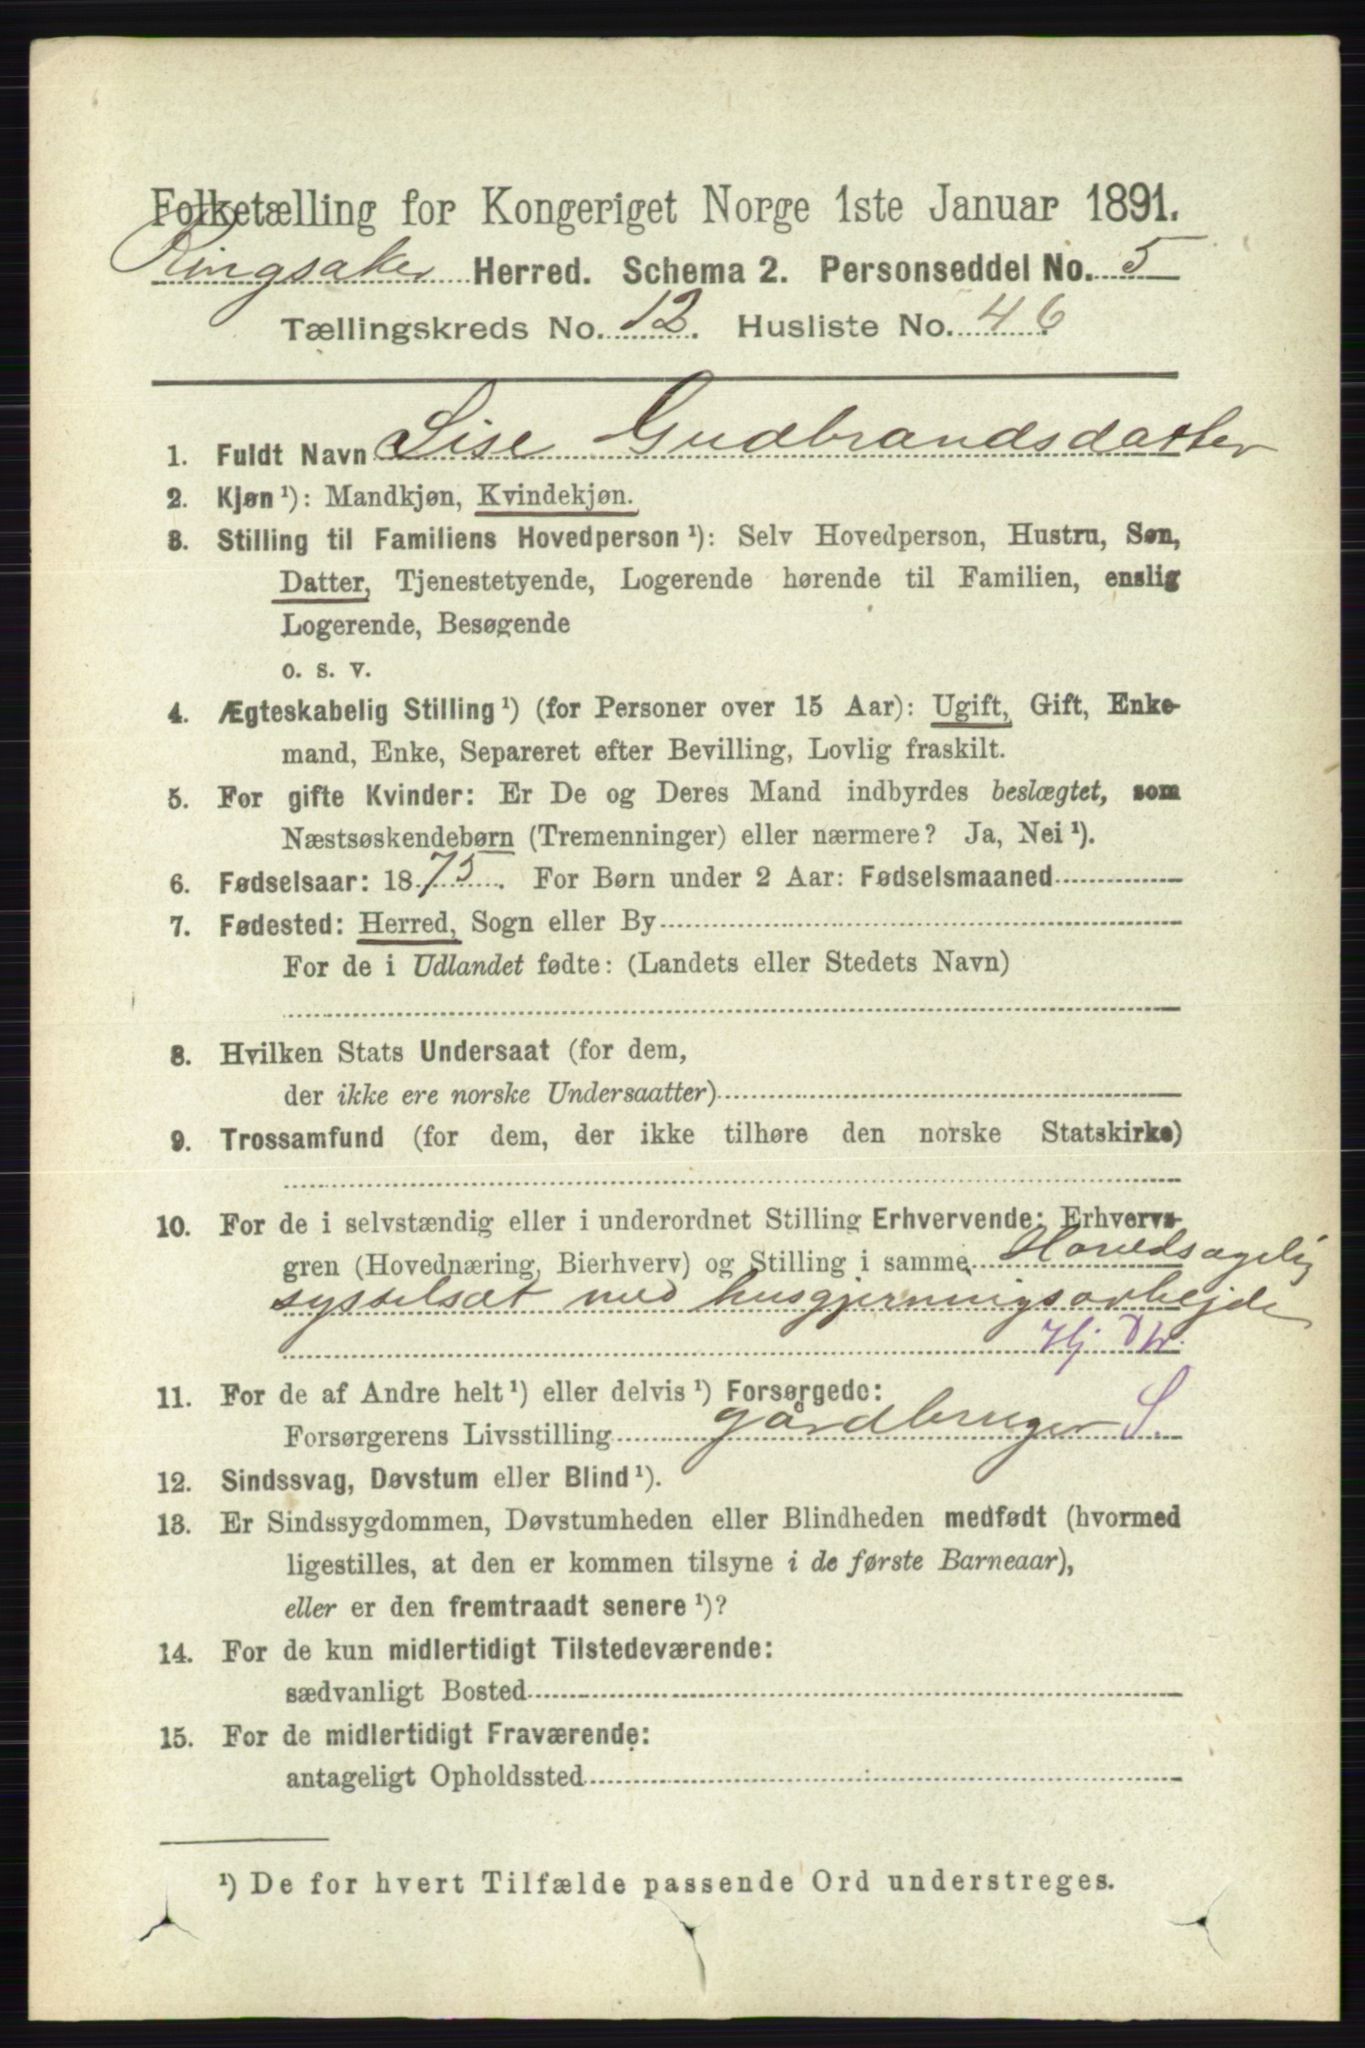 Folketælling for Kongeriget Norge 1ste Januar 1891.
Ringsaker Herred. Schema 2. Personseddel No. 5
Tællingskreds No. 12. Husliste No. 46
1. Fuldt Navn Lise Gudbrandsdatter
2. Kjøn ¹): Mandkjøn, Kvindekjøn.
3. Stilling til Familiens Hovedperson ¹): Selv Hovedperson, Hustru, Søn,
Datter, Tjenestetyende, Logerende hørende til Familien, enslig
Logerende, Besøgende
o. s. v.
4. Ægteskabelig Stilling ¹) (for Personer over 15 Aar): Ugift, Gift, Enke-
mand, Enke, Separeret efter Bevilling, Lovlig fraskilt.
5. For gifte Kvinder: Er De og Deres Mand indbyrdes beslægtet, som
Næstsøskendebørn (Tremenninger) eller nærmere? Ja, Nei ¹).
6. Fødselsaar: 1875. For Børn under 2 Aar: Fødselsmaaned
7. Fødested: Herred, Sogn eller By
For de i Udlandet fødte: (Landets eller Stedets Navn)
8. Hvilken Stats Undersaat (for dem,
der ikke ere norske Undersaatter)
9. Trossamfund (for dem, der ikke tilhøre den norske Statskirke)
10. For de i selvstændig eller i underordnet Stilling Erhvervende: Erhvervs-
gren (Hovednæring, Bierhverv) og Stilling i samme Hovedsagelig
sysselsat med husgjerningsarbejde
Hj
11. For de af Andre helt ¹) eller delvis ¹) Forsørgede:
Forsørgerens Livsstilling gårdbruger S.
12. Sindssvag, Døvstum eller Blind ¹).
13. Er Sindssygdommen, Døvstumheden eller Blindheden medfødt (hvormed
ligestilles, at den er kommen tilsyne i de første Barneaar),
eller er den fremtraadt senere ¹)?
14. For de kun midlertidigt Tilstedeværende:
sædvanligt Bosted
15. For de midlertidigt Fraværende:
antageligt Opholdssted
¹) De for hvert Tilfælde passende Ord understreges.